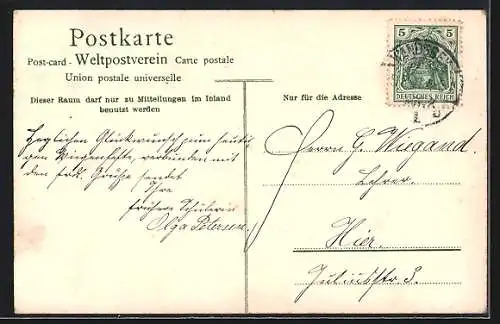 Postkarte
Post-card - Weltpostverein Carte postale
Union postale universelle
Dieser Raum darf nur zu Mitteilungen im Inland
benutzt werden
Nur für die Adresse
5 5
DEUTSCHES REICH
Herzlichen Glückwunsch zum heuti-
gen Wiegenfeste, verbunden mit
den Grüße sendet
Ihre
frühere Schülerin
Olga Petersen.
Herrn G. Wiegand.
Lehrer.
Hier.
Juliusstr